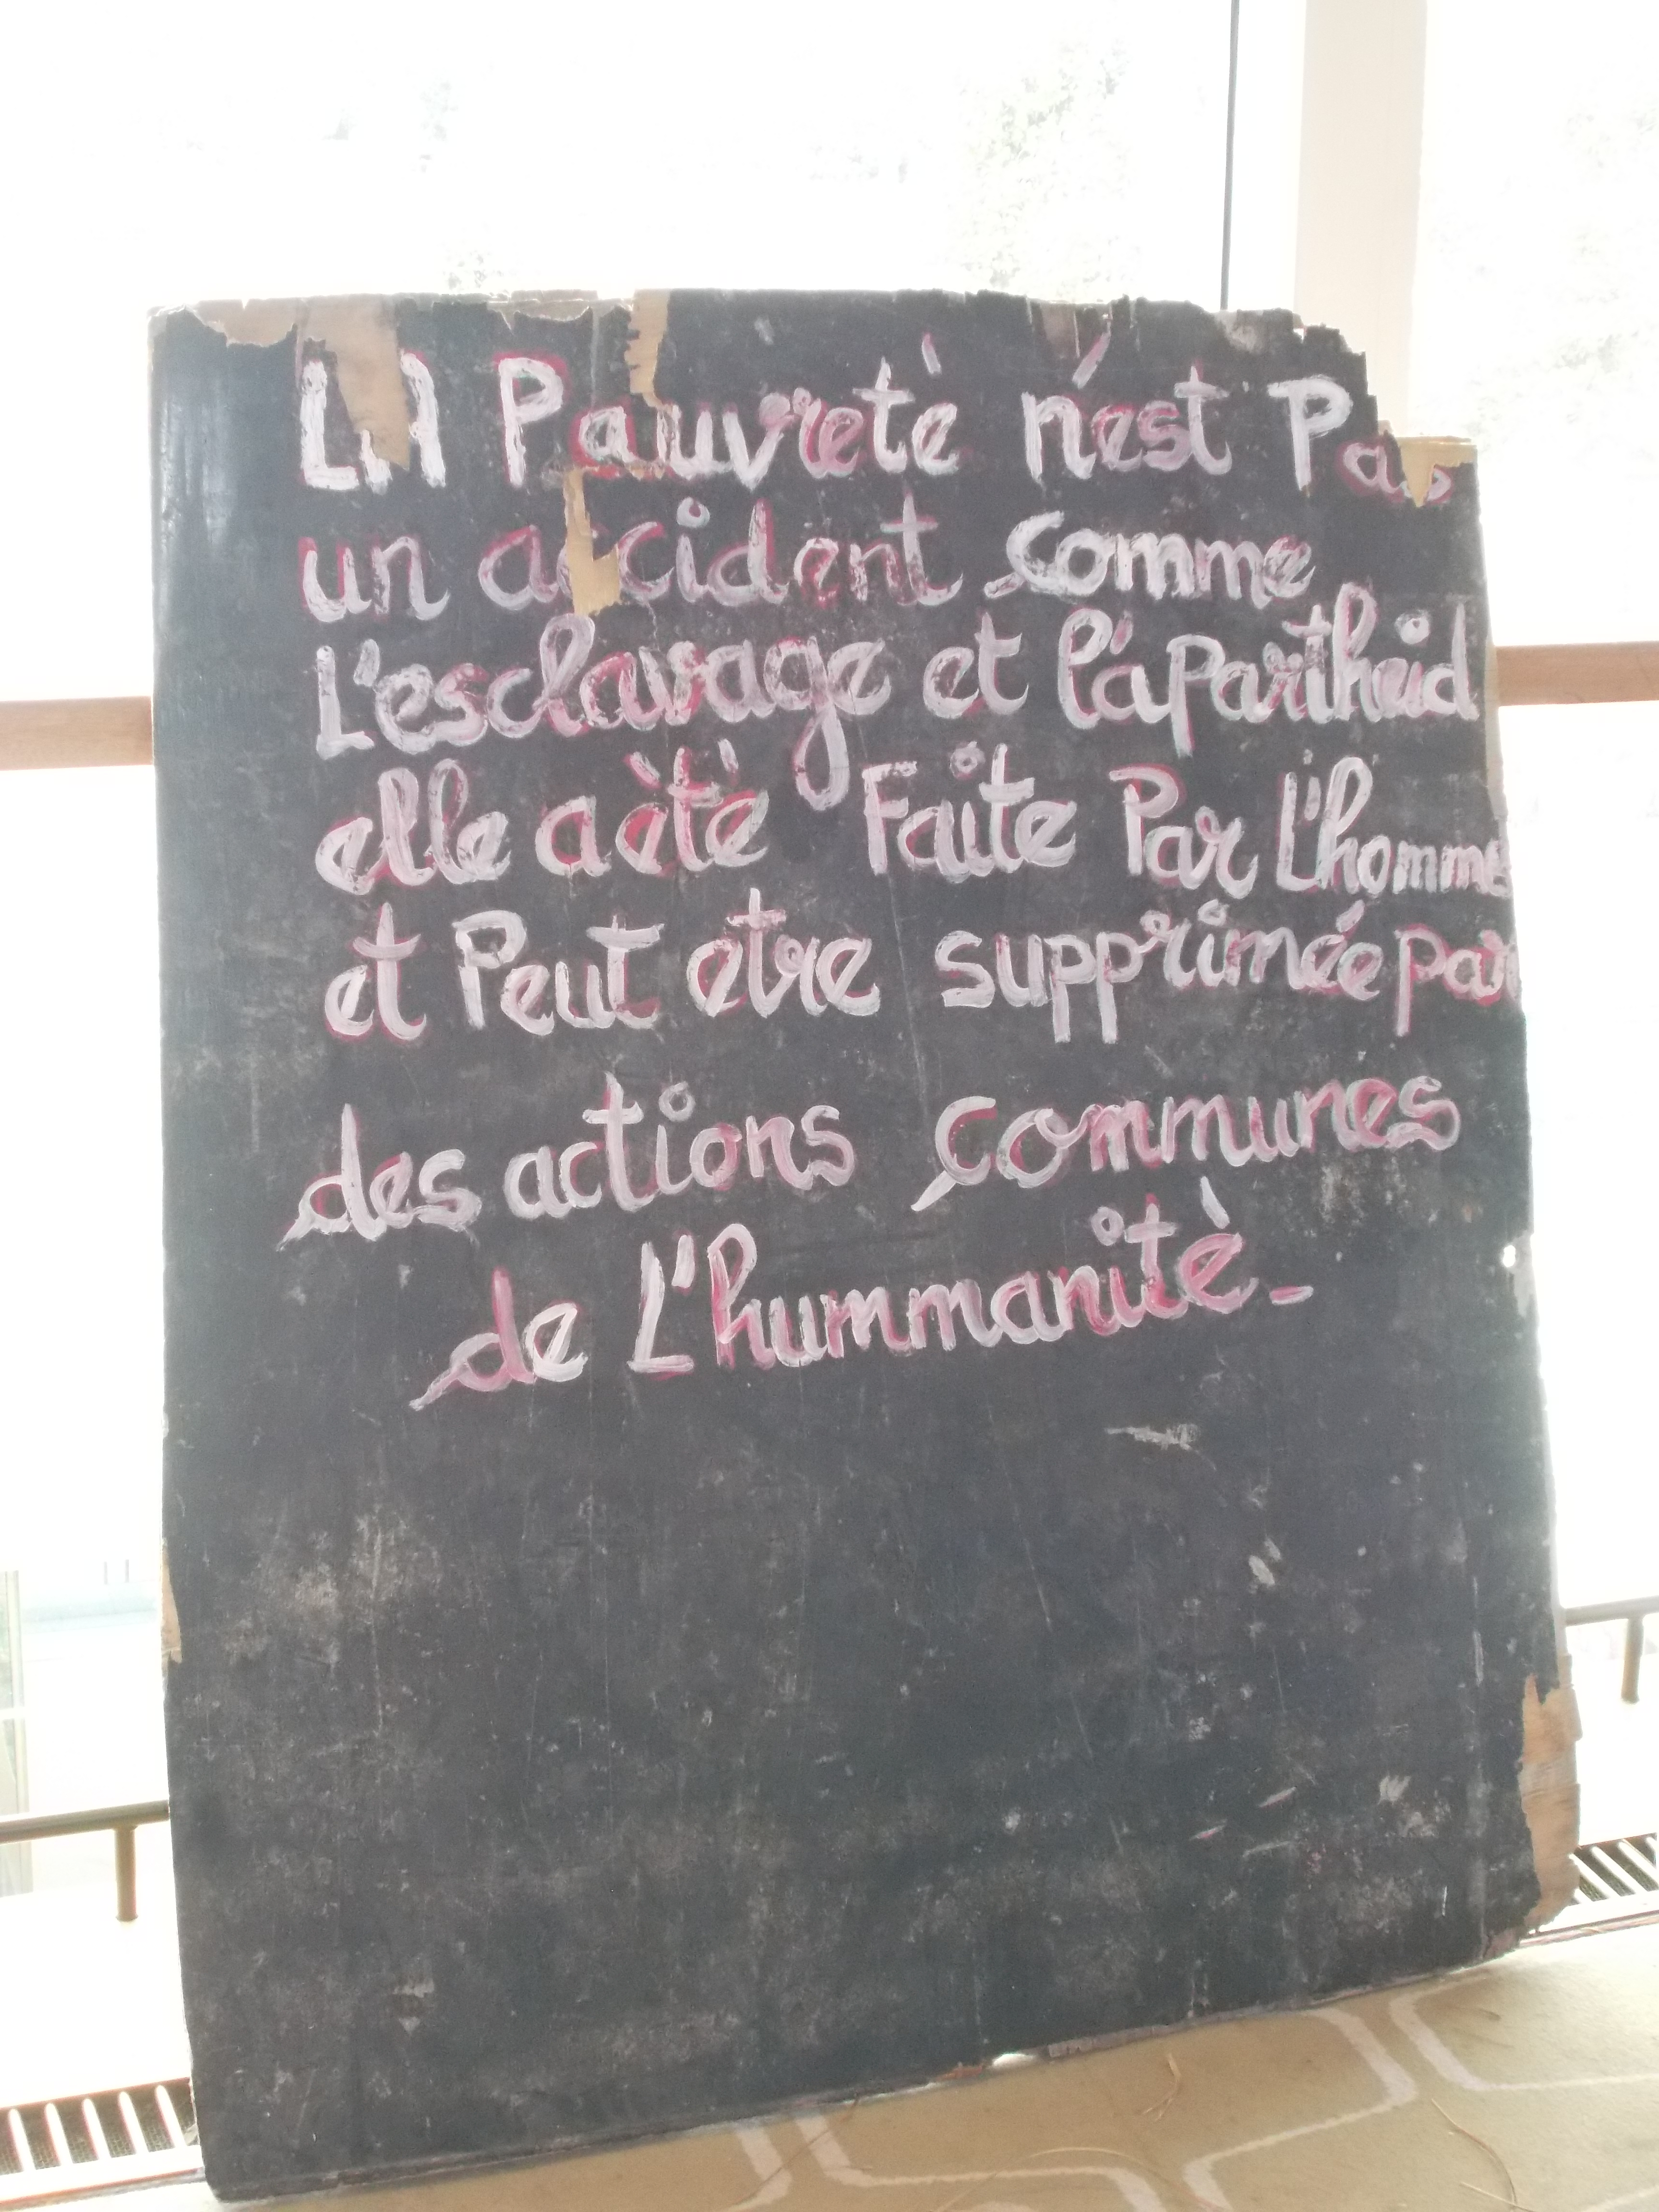 LA Pauvretè n'est Pas
un accident comme
L'esclavage et l'apartheid
elle a ètè Faite Par L'homme
et Peut etre supprimée par
des actions communes
de L'hummanitè-